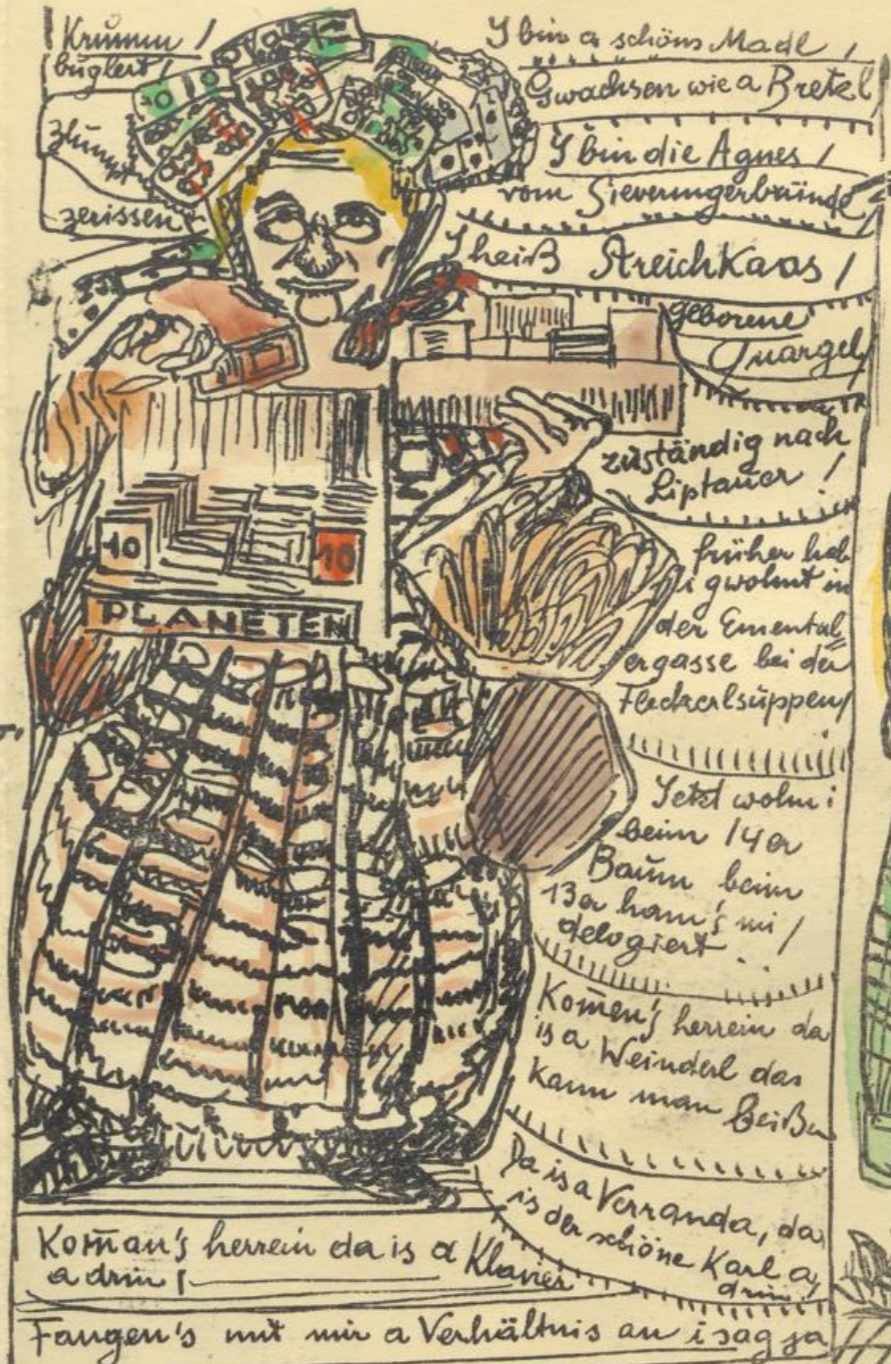 Krumm /
buglert /
zerissen
I bin a schöns Madl /
Gwachsen wie a Bretzl
I bin die Agnes /
vom Sieveringerbründl
I heiß Streichkaas /
geborene
Quargel /
zuständig nach
Liptauer !
früher hab
i gwohnt in
der Emental
ergasse bei der
Fleckerlsuppen /
Jetzt wohn i
beim 14er
Baum beim
13er ham's mi /
delogiert
Kom̄en's herrein da
is a Weinderl das
kann man beißn
Da is a Verranda, da
is der schöne Karl a
drin !
10
10
PLANETEN
Kom̄an's herrein da is a Klavier
a drin !
Fangen's mit mir a Verhältnis an i sag ja